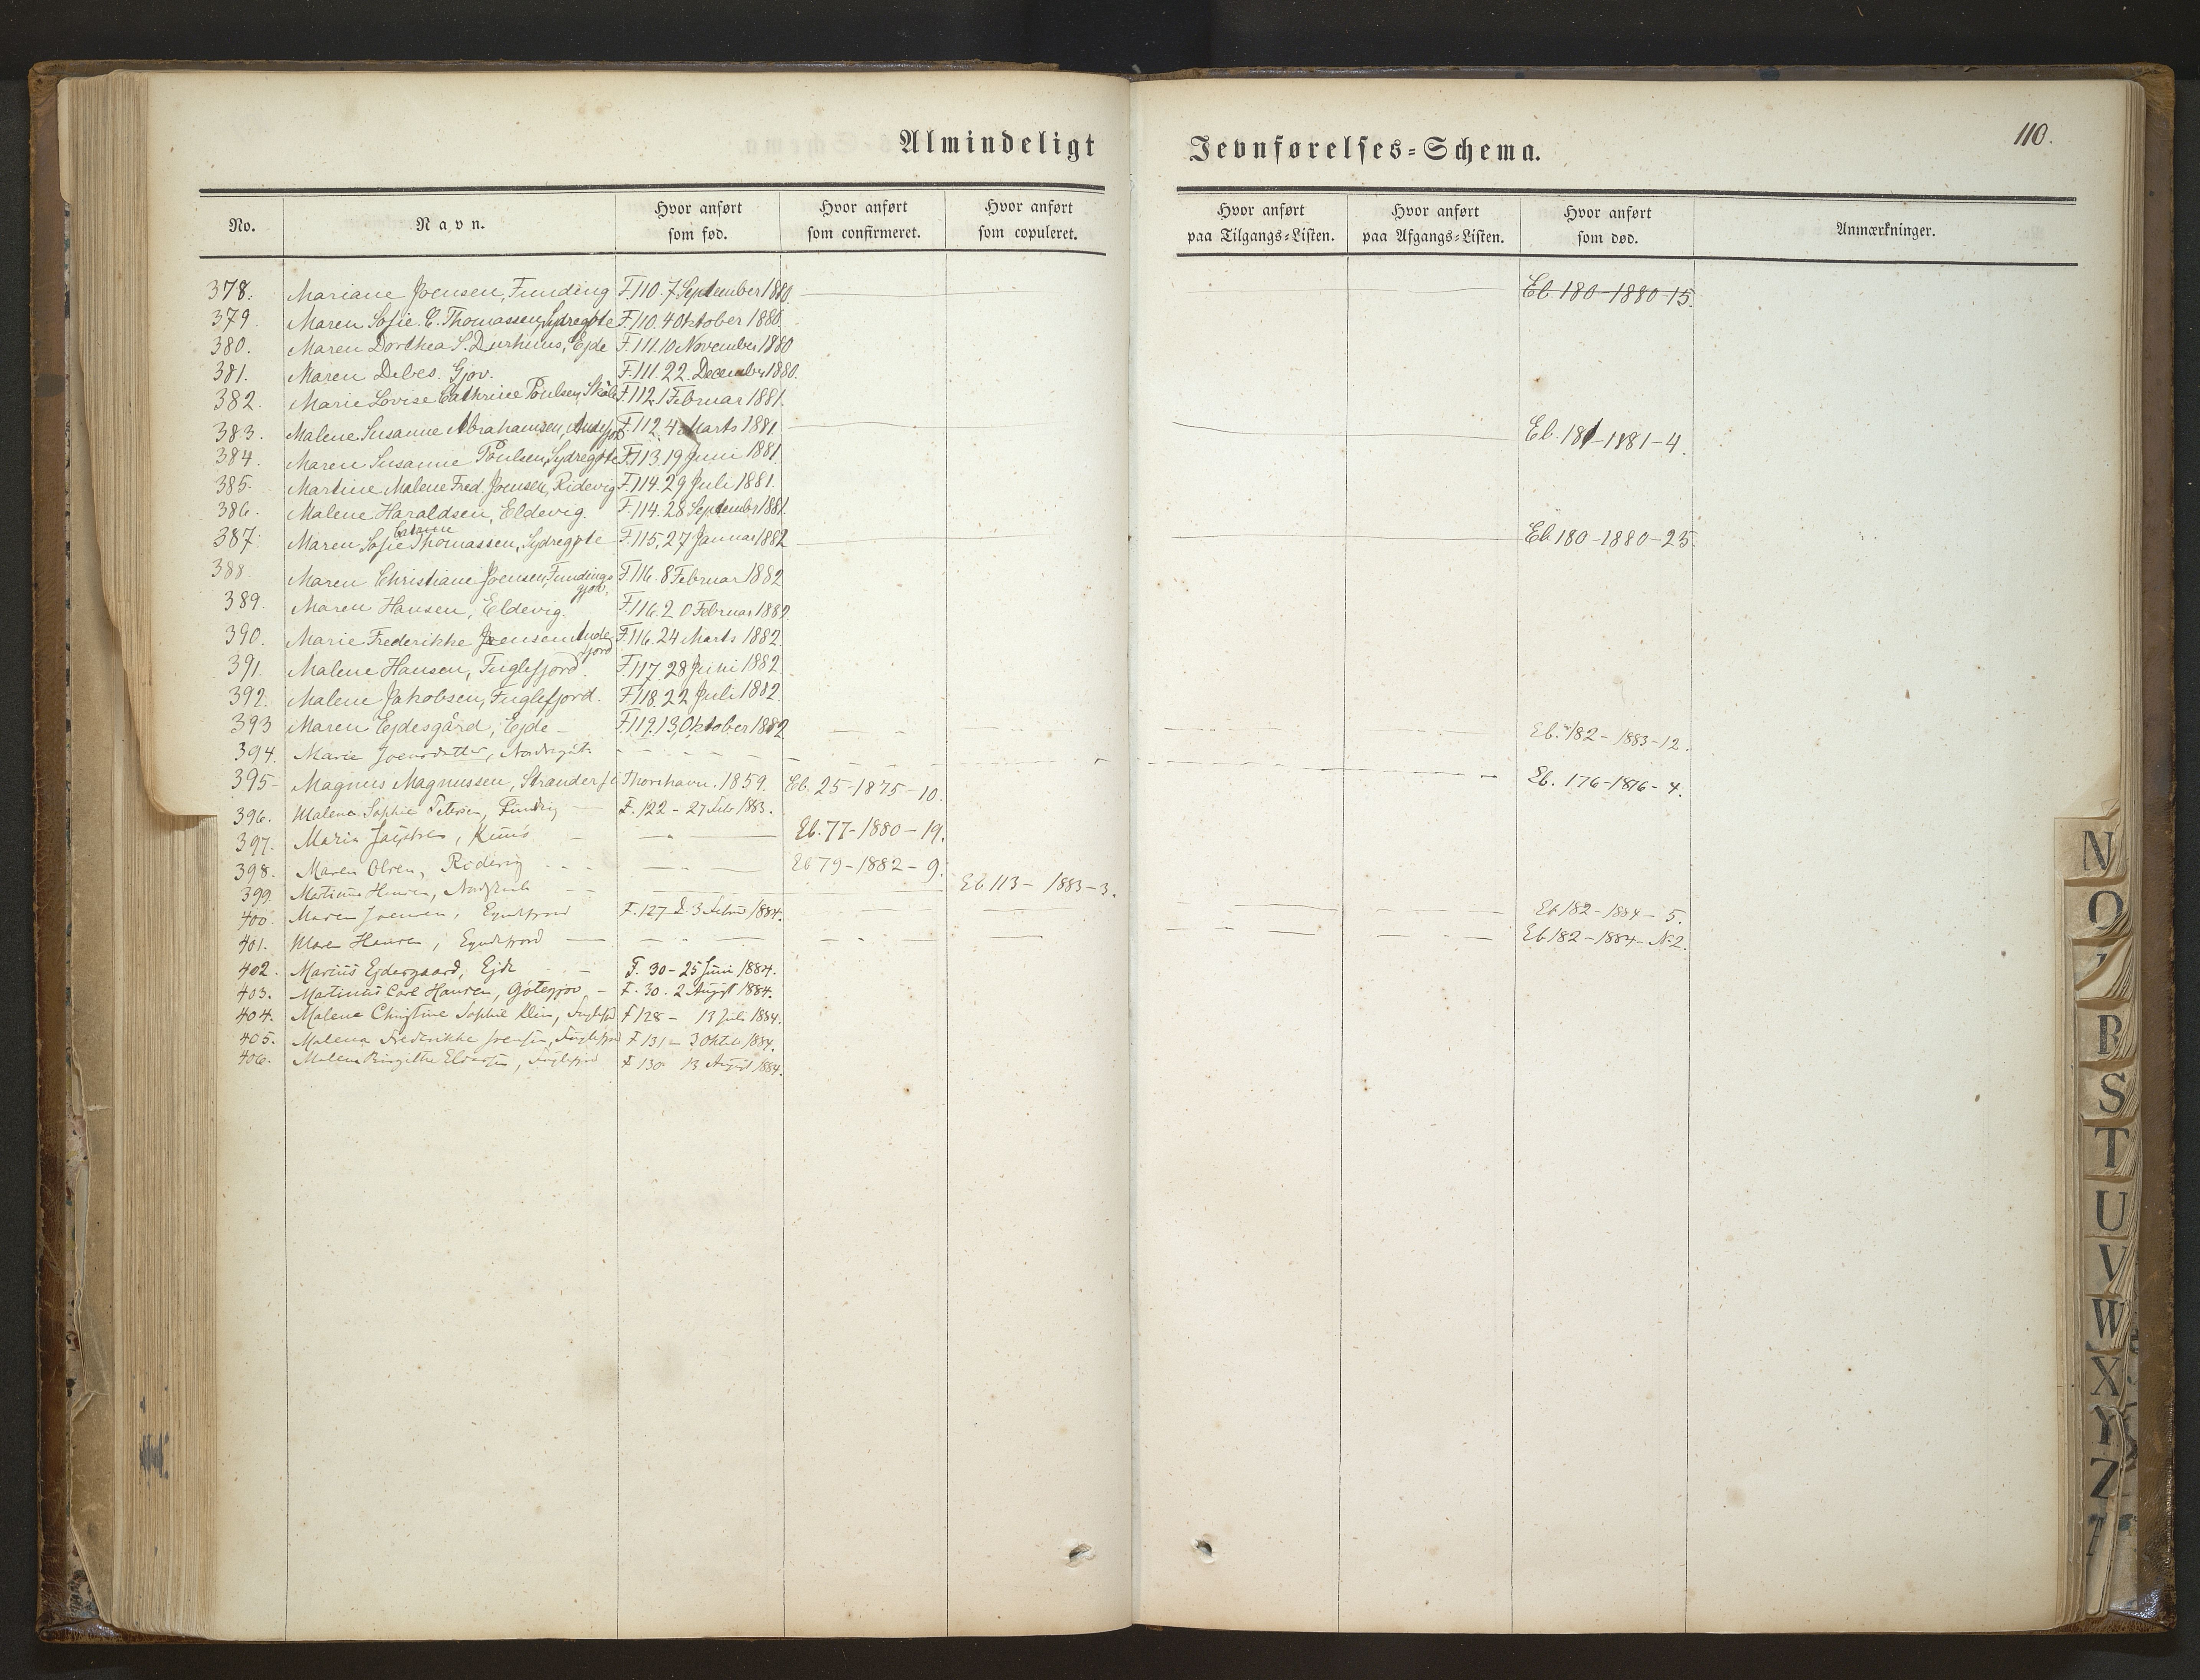 Almindeligt Jevnførelses=Schema.
110.
No. Navn. Hvor anført som fød. Hvor anført som confirmeret. Hvor anført som copuleret. Hvor anført paa Tilgangs=Listen. Hvor anført paa Afgangs=Listen. Hvor anført som død. Anmærkninger.
378. Mariane Joensen, Funding F. 110. 7 September 1880. Eb. 180-1880-15.
379. Maren Sofie. C. Thomassen, Sydregøte F. 110. 4 Oktober 1880.
380. Maren Dorthea S. Durhuus, Ejde F. 111. 10 November 1880
381. Maren Debes. Gjov. F. 111. 22. December 1880.
382. Marie Lovise Cathrine Poulsen, Skåle F. 112. 1 Februar 1881.
383. Malene Susanne Abrahamsen, Andefjord F. 112. 4 Marts 1881 Eb. 181-1881-4.
384. Maren Susanne Poulsen, Sydregøte F. 113. 19 Juni 1881.
385. Martine Malene Fred. Joensen, Ridevig F. 114. 29 Juli 1881.
386. Malene Haraldsen, Eldevig. F. 114. 28 September 1881.
387. Maren Sofie Catrine Thomassen, Sydregøte F. 115, 27 Januar 1882 Eb. 180-1880-25.
388. Maren Christiane Joensen, Fundings gjov. F. 116. 8 Februar 1882
389. Maren Hansen, Eldevig. F. 116. 20 Februar 1882
390. Marie Frederikke Joensen Andefjord F. 116. 24 Marts 1882
391. Malene Hansen, Fuglefjord. F. 117. 28 Juni 1882
392. Malene Jakobsen, Fuglefjord. F. 118. 22 Juli 1882
393 Maren Ejdesgård, Ejde F. 119. 13 Oktober 1882 Eb. 182-1883-12.
394. Marie Joensdatter,
395 Magnus Magnussen, Thorshavn. 1859. Eb. 25-1875-10. Eb. 176-1876-4.
396. Malene Sophie Petersen, Funding F. 122 - 27 Febr 1883.
397. Maria Eb. 77-1880-19.
398. Maren Olsen, Ridevig Eb 79-1882-9.
399. Hansen, Eb 113-1883-3.
400. Maren Joensen, F. 127 d. 3 1884. Eb 182-1884-5.
401. Maren Hansen, Eb 182-1884-N 2.
402. Marius Ejdesgaard, Ejde F. 30-25 Juni 1884.
403. Martinus Carl Hansen, Gøtegjov F. 30. 2 August 1884.
404. Malene Christine Sophie Klein, Fuglefjord F 128 - 13 Juli 1884.
405. Malena Frederikke Joensen, Fuglefjord F 131 - 3 Oktbr 1884.
406. Malene Birgithe Fuglefjord F 130 13 August 1884.
N
O
R
S
T
U
V
W
X
Y
Z